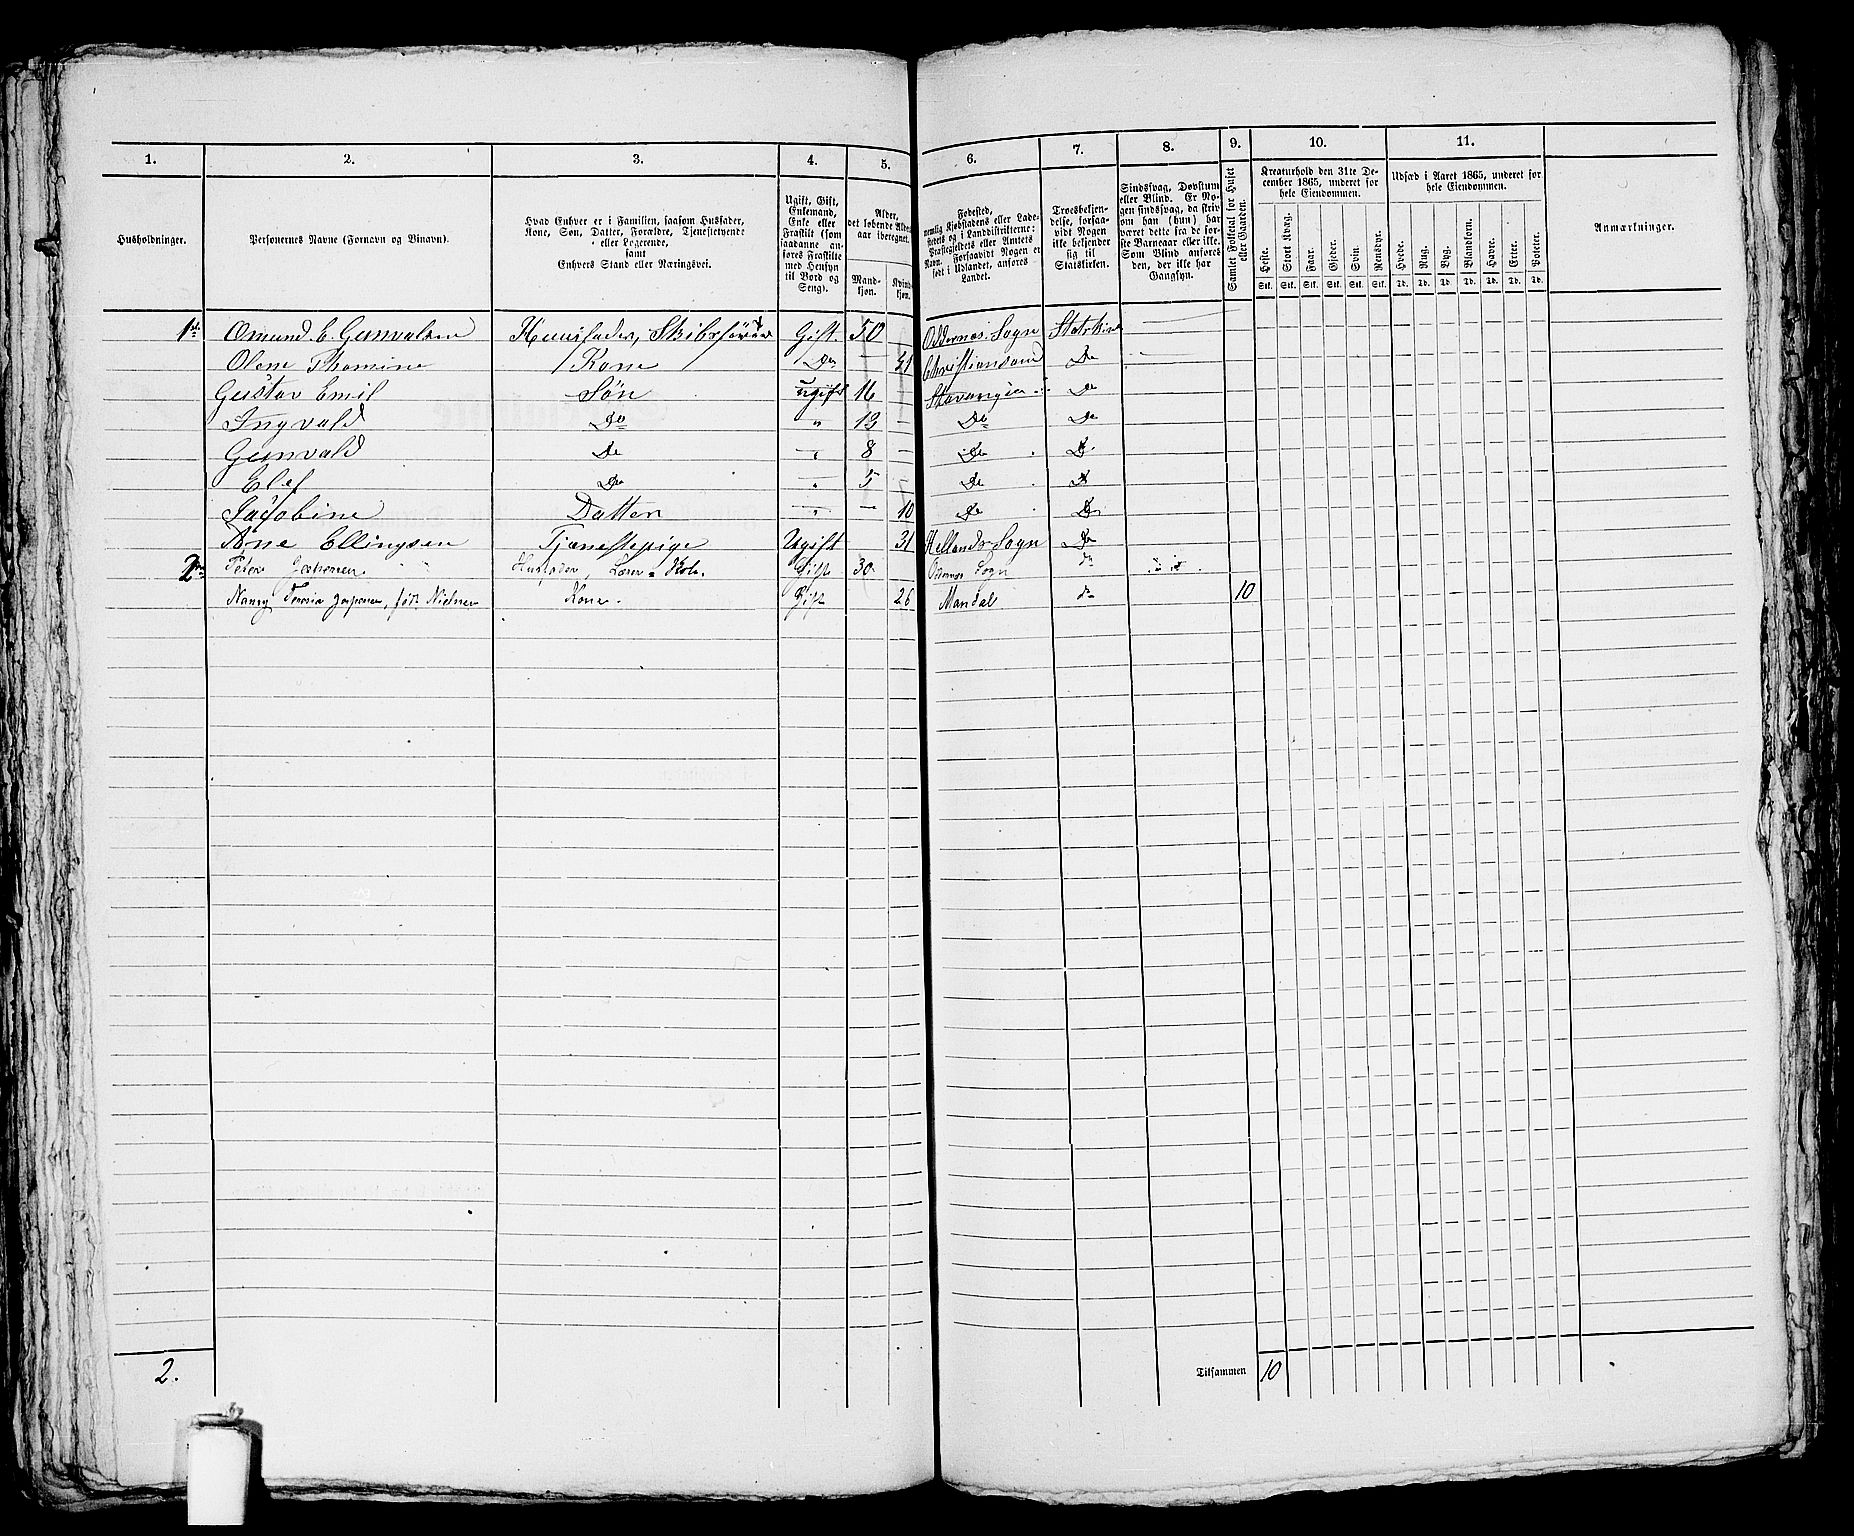 1. 2. 3. 4. 5. 6. 7. 8. 9. 10. 11.
Husholdninger.
Personernes Navne (Fornavn og Binavn).
Hvad Enhver er i Familien, saasom Husfader,
Kone, Søn, Datter, Forældre, Tjenestetyende
eller Logerende,
samt
Enhvers Stand eller Næringsvei.
Ugift, Gift,
Enkemand,
Enke eller
Fraskilt (som
saadanne an-
føres Fraskilte
med Hensyn
til Bord og
Seng).
Alder,
det løbende Alders-
aar iberegnet.
Mand-
kjøn.
Kvind-
kjøn.
Fødested,
nemlig Kjøbstadens eller Lade-
stedets og i Landdistrikterne:
Præstegjeldets eller Amtets
Navn. Forsaavidt Nogen er
født i Udlandet, anføres
Landet.
Troesbekjen-
delse, forsaa-
vidt Nogen
ikke bekjender
sig til
Statskirken.
Sindssvag, Døvstum
eller Blind. Er No-
gen sindssvag, da skriv
om han (hun) har
været dette fra de før-
ste Barneaar eller ikke.
Som Blind ansøres
den, der ikke har
Gangsyn.
Samlet Folketal for Huset
eller Gaarden.
Kreaturhold den 31te De-
cember 1865, underet for
hele Eiendommen.
Heste. Stort Kvæg. Faar. Gjeder. Svin. Rensdyr.
Stk. Stk. Stk. Stk. Stk. Stk.
Udsæd i Aaret 1865, underet for
hele Eiendommen.
Hvede. Rug. Byg. Blandkorn. Havre. Erter. Poteter.
Td. Td. Td. Td. Td. Td. Td.
Anmærkninger.
1 Omund E. Gunvalsen Huusfader, Skibsfører Gift 50 Oddernes Sogn Statskirke
Olene Thomine Kone Do — Christiansand Do
Gustav Emil Søn ugift 16 Stavanger Do
Ingvald Do " 13 — Do Do
Gunvald Do " 8 — Do Do
Elef Do " 5 — Do Do
Jacobine Datter " — 10 Do Do
Ane Ellingsen Tjenestepige Ugift 31 Hellands Sogn Do
2 Peter Husfader, Lærer Gift 30 Oddernes Sogn do
Nanny Jespersen, født Nielsen Kone. Gift 26 Mandal do 10
2.
Tilsammen 10